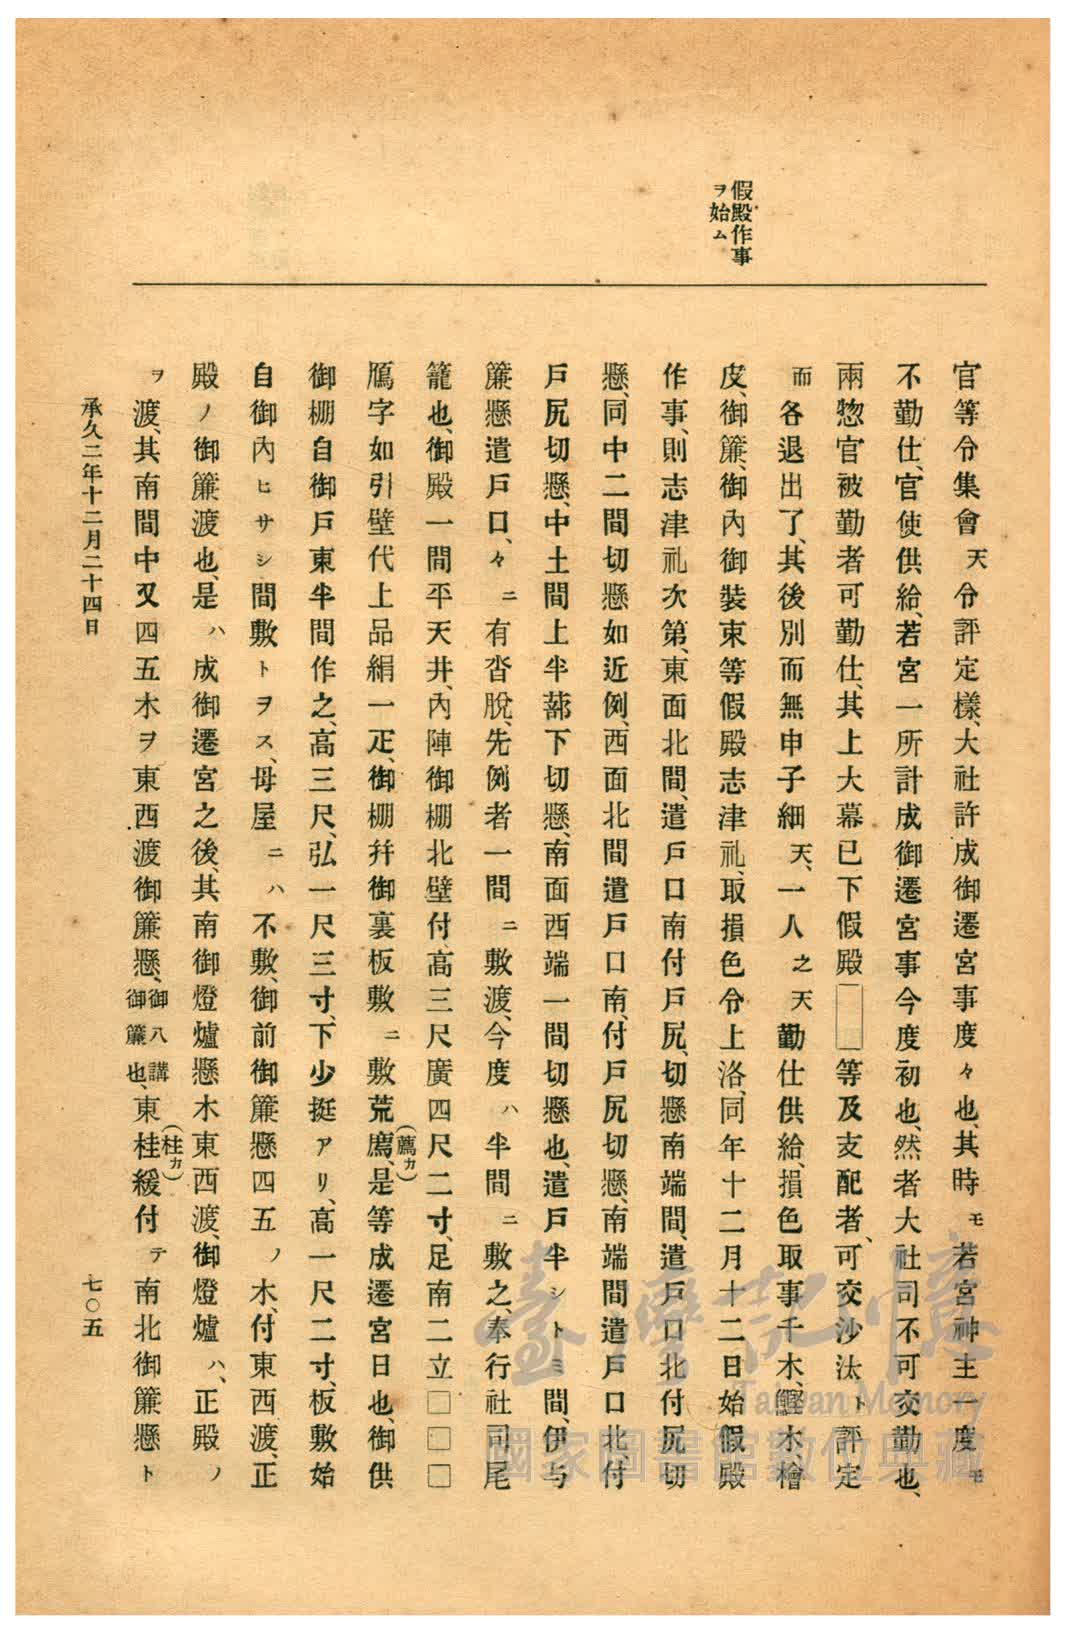 假殿作事
ヲ始ム
官等令集會天令評定樣、大社許成御遷宮事度々也、其時モ若宮神主一度モ
不勤仕、官使供給、若宮一所計成御遷宮事今度初也、然者大社司不可交勤也、
兩惣官被勤者可勤仕、其上大幕已下假殿□□等及支配者、可交沙汰ト評定
而各退出了、其後別而無申子細天、一人之天勤仕供給、損色取事千木、鰹木、檜
皮、御簾、御內御裝束等假殿志津礼、取損色令上洛、同年十二月十二日始假殿
作事、則志津礼次第、東面北間、遣戶口南付戶尻、切懸南端間、遣戶口北付尻切
懸、同中二間切懸如近例、西面北間遣戶口南、付戶尻切懸、南端間遣戶口北付
戶尻切懸、中土間上半蔀下切懸、南面西端一間切懸也、遣戶半シトミ間、伊与
簾懸遣戶口、々ニ有沓脫、先例者一間ニ敷渡、今度ハ半間ニ敷之、奉行社司尾
籠也、御殿一間平天井、內陣御棚北壁付、高三尺廣四尺二寸、足南二立□□□
鴈字如引壁代上品絹一疋、御棚幷御裏板敷ニ敷荒廌、是等成遷宮日也、御供
(薦カ)
御棚自御戶東半間作之、高三尺、弘一尺三寸、下少挺アリ、高一尺二寸、板敷始
自御內ヒサシ間敷トヲス、母屋ニハ不敷、御前御簾懸四五ノ木、付東西渡、正
殿ノ御簾渡也、是ハ成御遷宮之後、其南御燈爐懸木東西渡、御燈爐ハ、正殿ノ
ヲ渡、其南間中又四五木ヲ東西渡御簾懸、御八講御簾也、東桂緩付テ南北御簾懸ト
(柱カ)
承久二年十二月二十四日
七〇五
臺灣記憶
Taiwan Memory
國家圖書館數位典藏